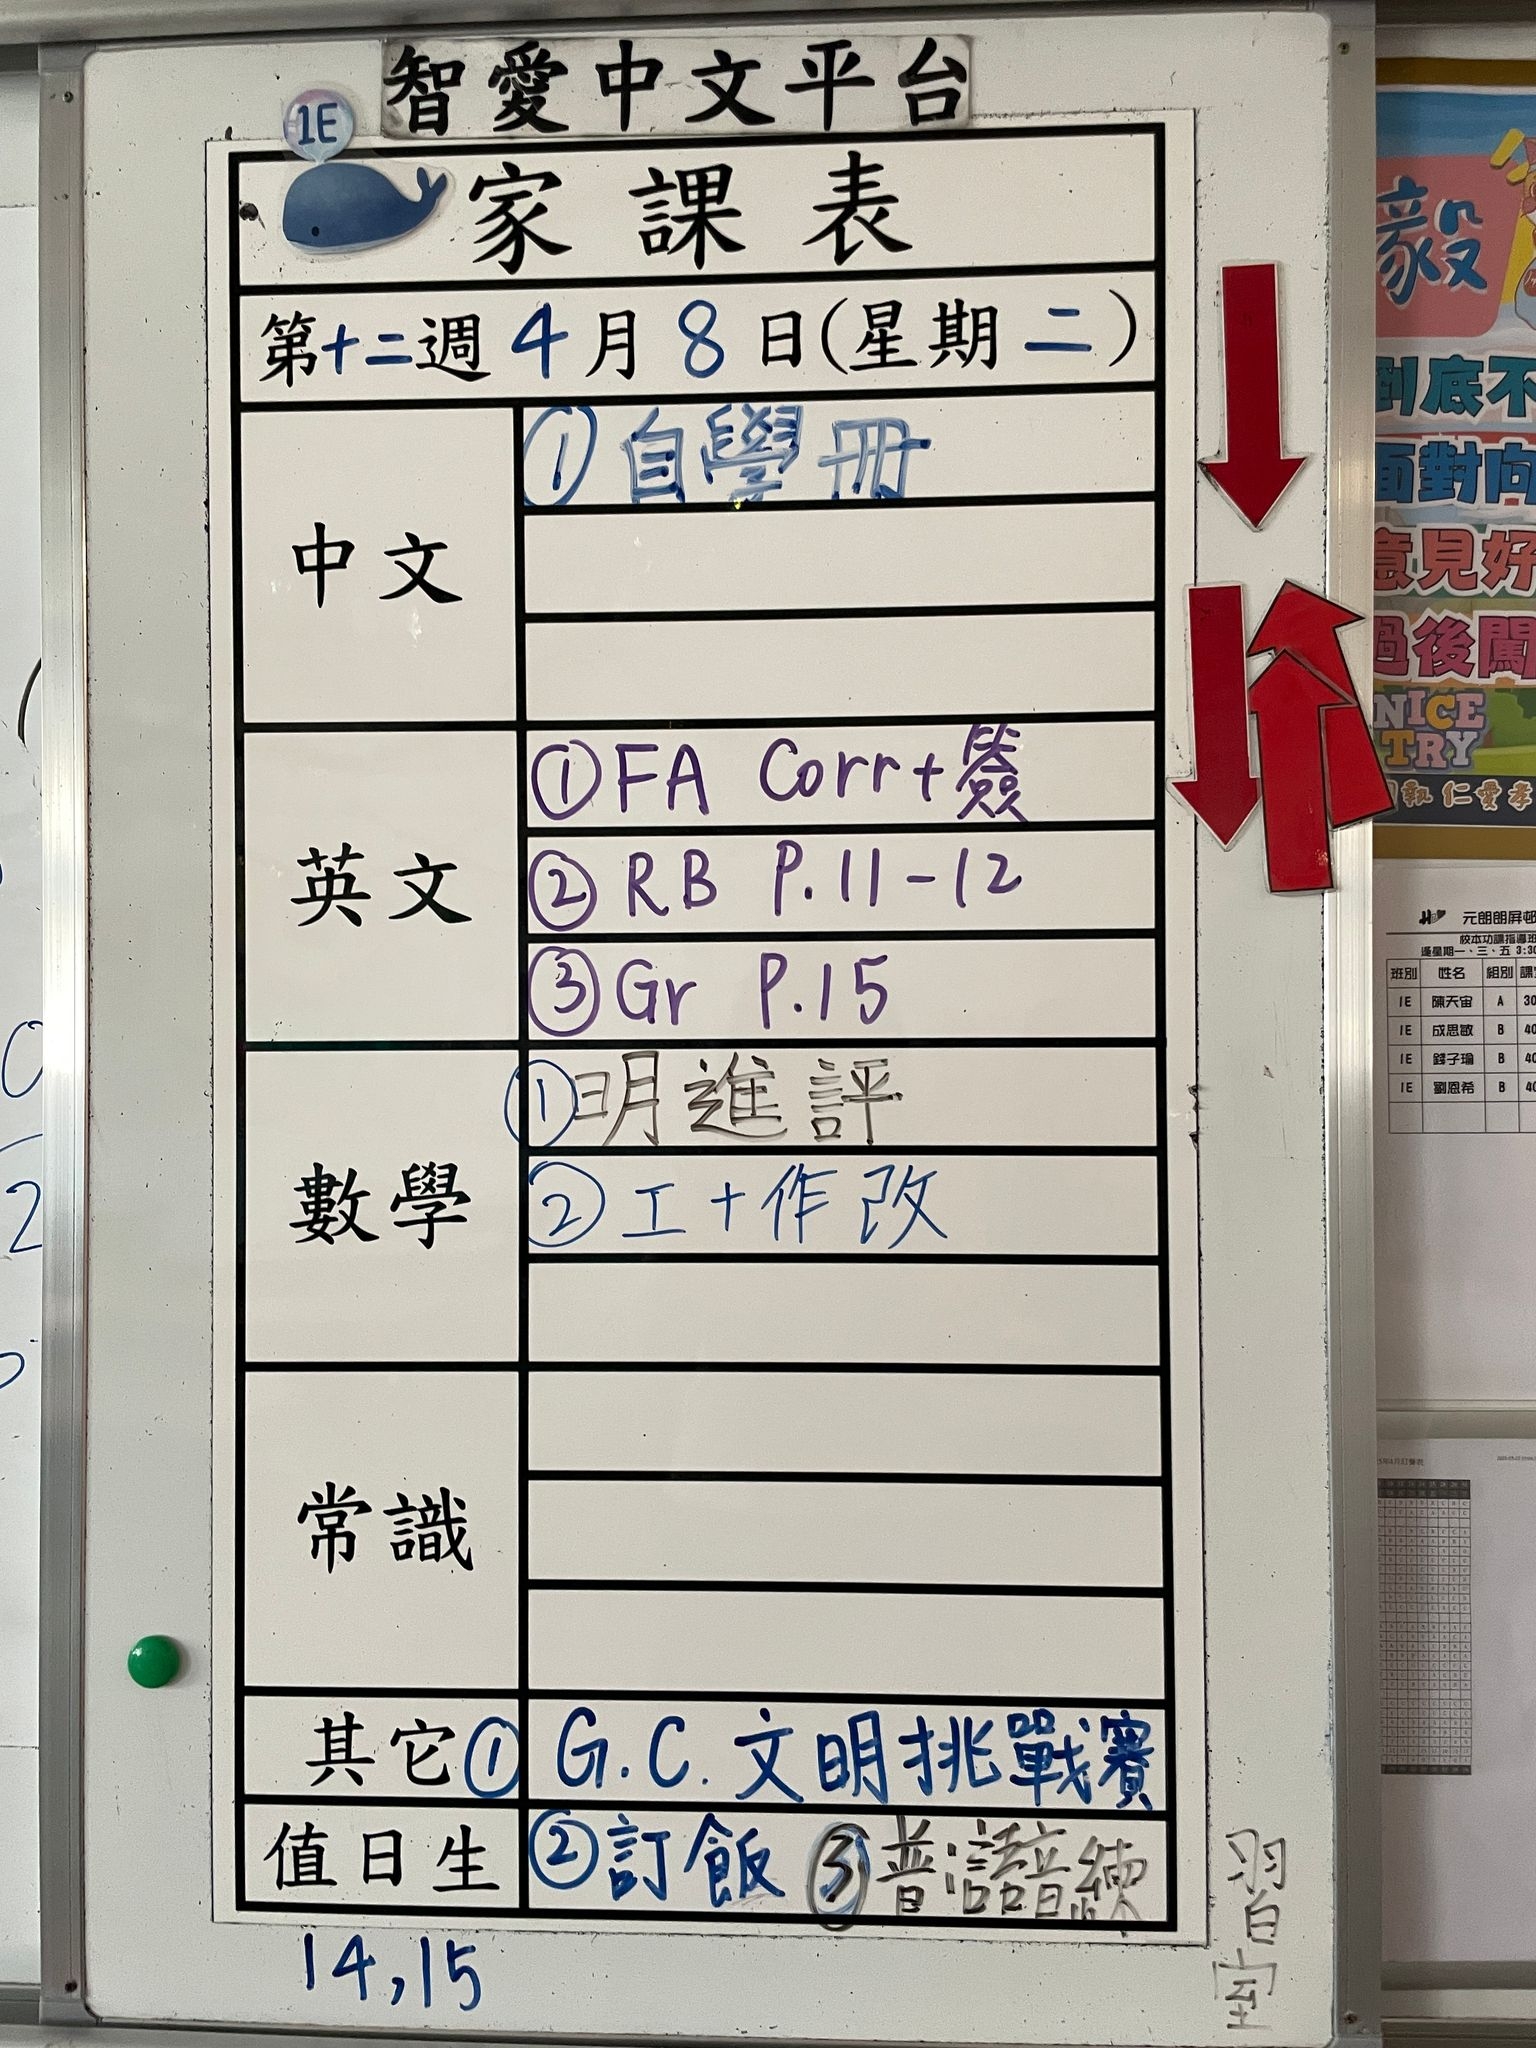 智愛中文平台
1E
家課表
第十二週 4月8日(星期二)
中文
① 自學冊
英文
① FA Corr+簽
② RB P.11-12
③ Gr P.15
數學
① 明進評
② 工+作改
常識
其它
① G.C. 文明挑戰賽
值日生
② 訂飯 ③ 普語音練
14,15
毅
到底不
面對向
意見好
過後闖
NICE
TRY
仁愛孝
元朗朗屏邨
校本功課指導班
逢星期一、三、五 3:30
班別 姓名 組別
1E 陳天宙 A 30
1E 成思敏 B 40
1E 錢子瑜 B 40
1E 劉恩希 B 40